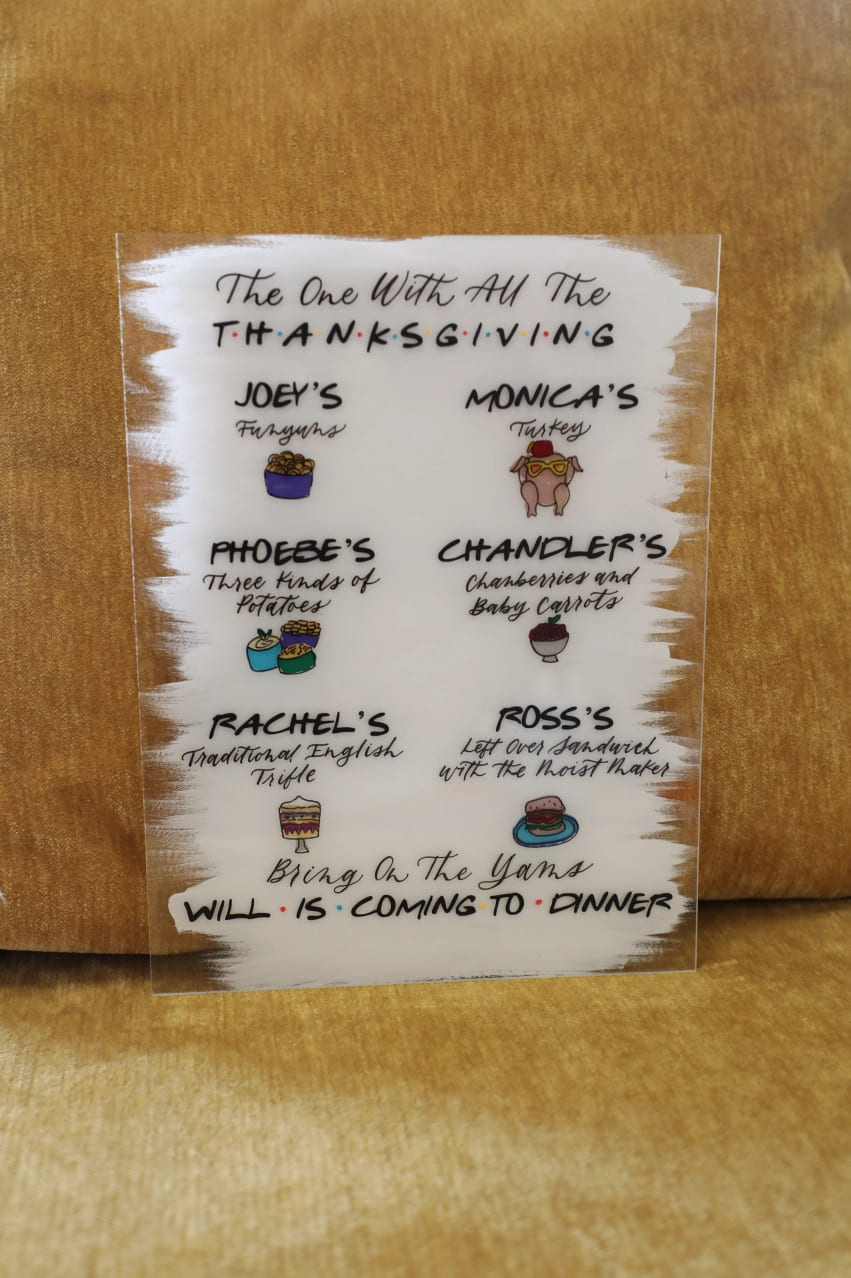 The One With All The
T·H·A·N·K·S G·I·V·I·N·G
JOEY'S
Funyuns
MONICA'S
Turkey
PHOEBE'S
Three Kinds of
Potatoes
CHANDLER'S
Chanberries and
Baby Carrots
RACHEL'S
Traditional English
Trifle
ROSS'S
Left Over Sandwich
with the Moist Maker
Bring On The Yams
WILL · IS · COMING · TO · DINNER